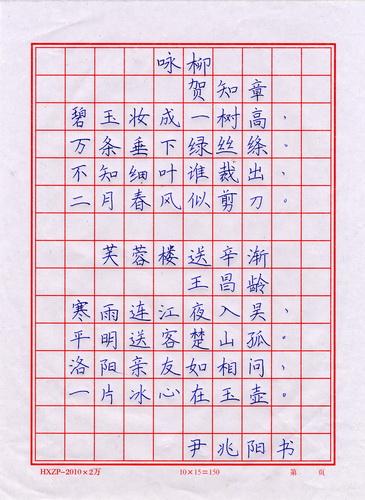 咏柳
贺知章
碧玉妆成一树高，
万条垂下绿丝绦。
不知细叶谁裁出，
二月春风似剪刀。
芙蓉楼送辛渐
王昌龄
寒雨连江夜入吴，
平明送客楚山孤。
洛阳亲友如相问，
一片冰心在玉壶。
尹兆阳书
HXZP-2010×2万 10×15=150 第 页